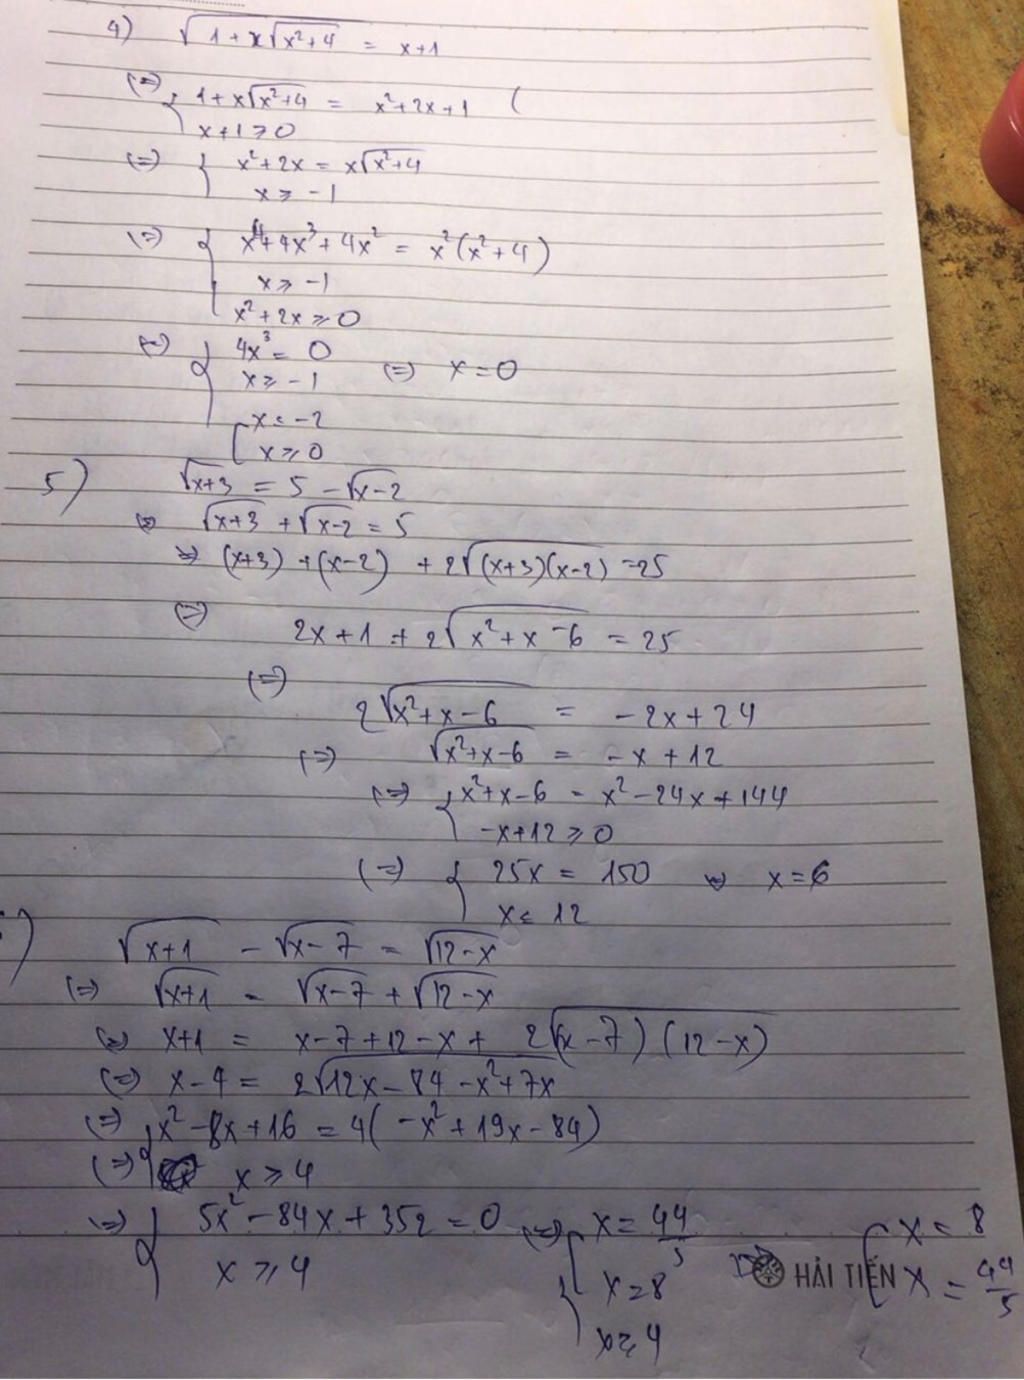 4) √(1+x√(x²+4)) = x+1
(=) { 1+x√(x²+4) = x²+2x+1 (
x+1 ≥ 0
(=) { x²+2x = x√(x²+4)
x ≥ -1
(=) { x⁴+4x³+4x² = x²(x²+4)
x ≥ -1
x²+2x ≥ 0
(=) { 4x³ = 0
x ≥ -1 (=) x=0
[ x ≤ -2
x ≥ 0
5) √(x+3) = 5 - √(x-2)
(=) √(x+3) + √(x-2) = 5
(=) (x+3) + (x-2) + 2√((x+3)(x-2)) = 25
(=) 2x+1 + 2√(x²+x-6) = 25
(=) 2√(x²+x-6) = -2x+24
(=) √(x²+x-6) = -x+12
(=) { x²+x-6 = x²-24x+144
-x+12 ≥ 0
(=) { 25x = 150 (=) x=6
x ≤ 12
) √(x+1) - √(x-7) = √(12-x)
(=) √(x+1) = √(x-7) + √(12-x)
(=) x+1 = x-7+12-x + 2√((x-7)(12-x))
(=) x-4 = 2√(12x-84-x²+7x)
(=) { x²-8x+16 = 4(-x²+19x-84)
(=) x ≥ 4
(=) { 5x²-84x+352 = 0 (=) { [ x = 44/5 [ x = 8
x ≥ 4 x=8 HẢI TIẾN x = 44/5
x ≥ 4